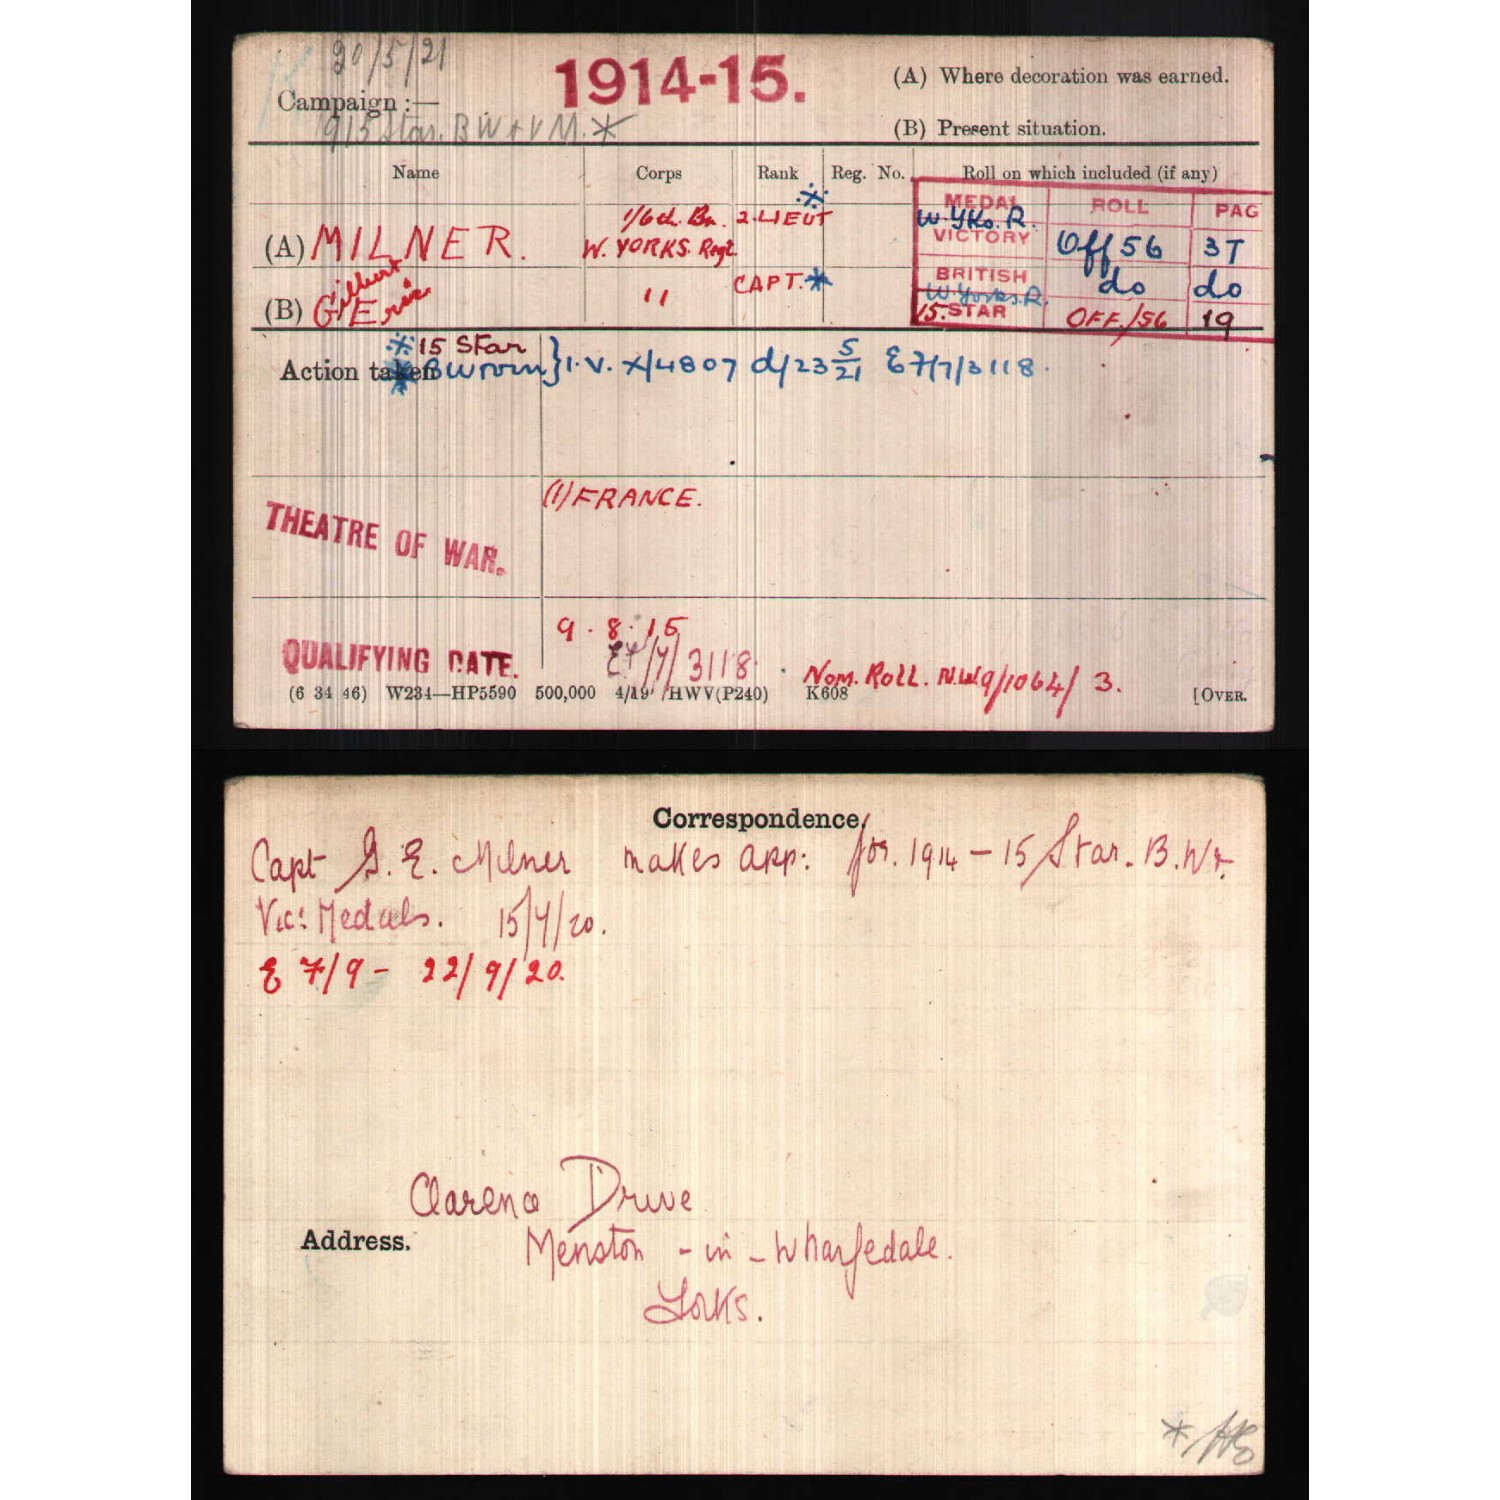 20/5/21
1914-15.
(A) Where decoration was earned.
Campaign :—
1915 Star. B W & V M. *
(B) Present situation.
Name Corps Rank Reg. No. Roll on which included (if any)
MEDAL ROLL PAG
W. Yks. R.
(A) MILNER. 1/6th. Bn. W. YORKS. Regt. 2. LIEUT *
VICTORY Off 56 3T
(B) Gilbert Eric " CAPT. *
BRITISH do do
W. Yorks. R.
15. STAR OFF./56 19
* 15 Star
Action taken * BWVM } I.V. X/4807 d/23 5/21 E 7/7/3118.
THEATRE OF WAR. (1) FRANCE.
9. 8. 15
QUALIFYING DATE. E7/7/3118.
Nom. Roll. N.W9/1064/3.
(6 34 46) W234—HP5590 500,000 4/19 HWV(P240) K608 [OVER.
Correspondence.
Capt G. E. Milner makes app: for. 1914 – 15 Star. B.W &.
Vic: Medals. 15/4/20.
E 7/9 – 22/9/20.
Clarence Drive
Address. Menston – in – Wharfedale.
Yorks.
*